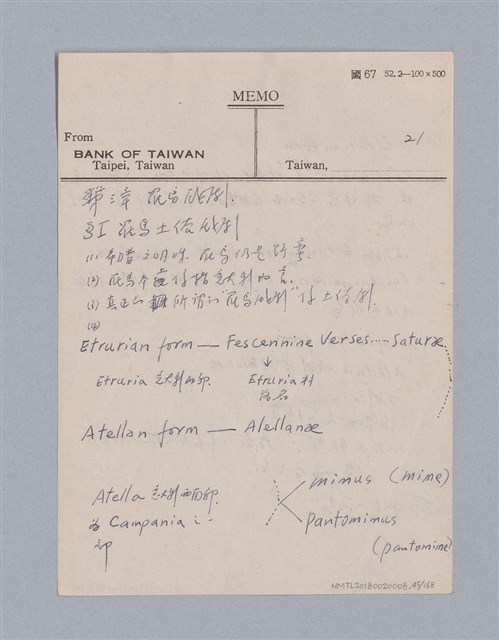 國 67 52.2—100×500
MEMO
From
BANK OF TAIWAN
Taipei, Taiwan
Taiwan,
21
第三章 羅馬戲劇.
§I 羅馬土俗戲劇
(1) 希腊文明時, 羅馬仍是野蛮.
(2) 羅馬个 係指意大利而言.
(3) 真正的 所謂的"羅馬戲劇"係土俗劇.
(4)
Etrurian form — Fescennine Verses ---- Saturæ
↓
Etruria 意大利西部. Etruria 村
落名
Atellan form — Alellanæ
Atella 意大利西南部
為 Campania 之一
部
mimus (mime)
pantomimus
(pantomime)
NMTL20180020008.45/168